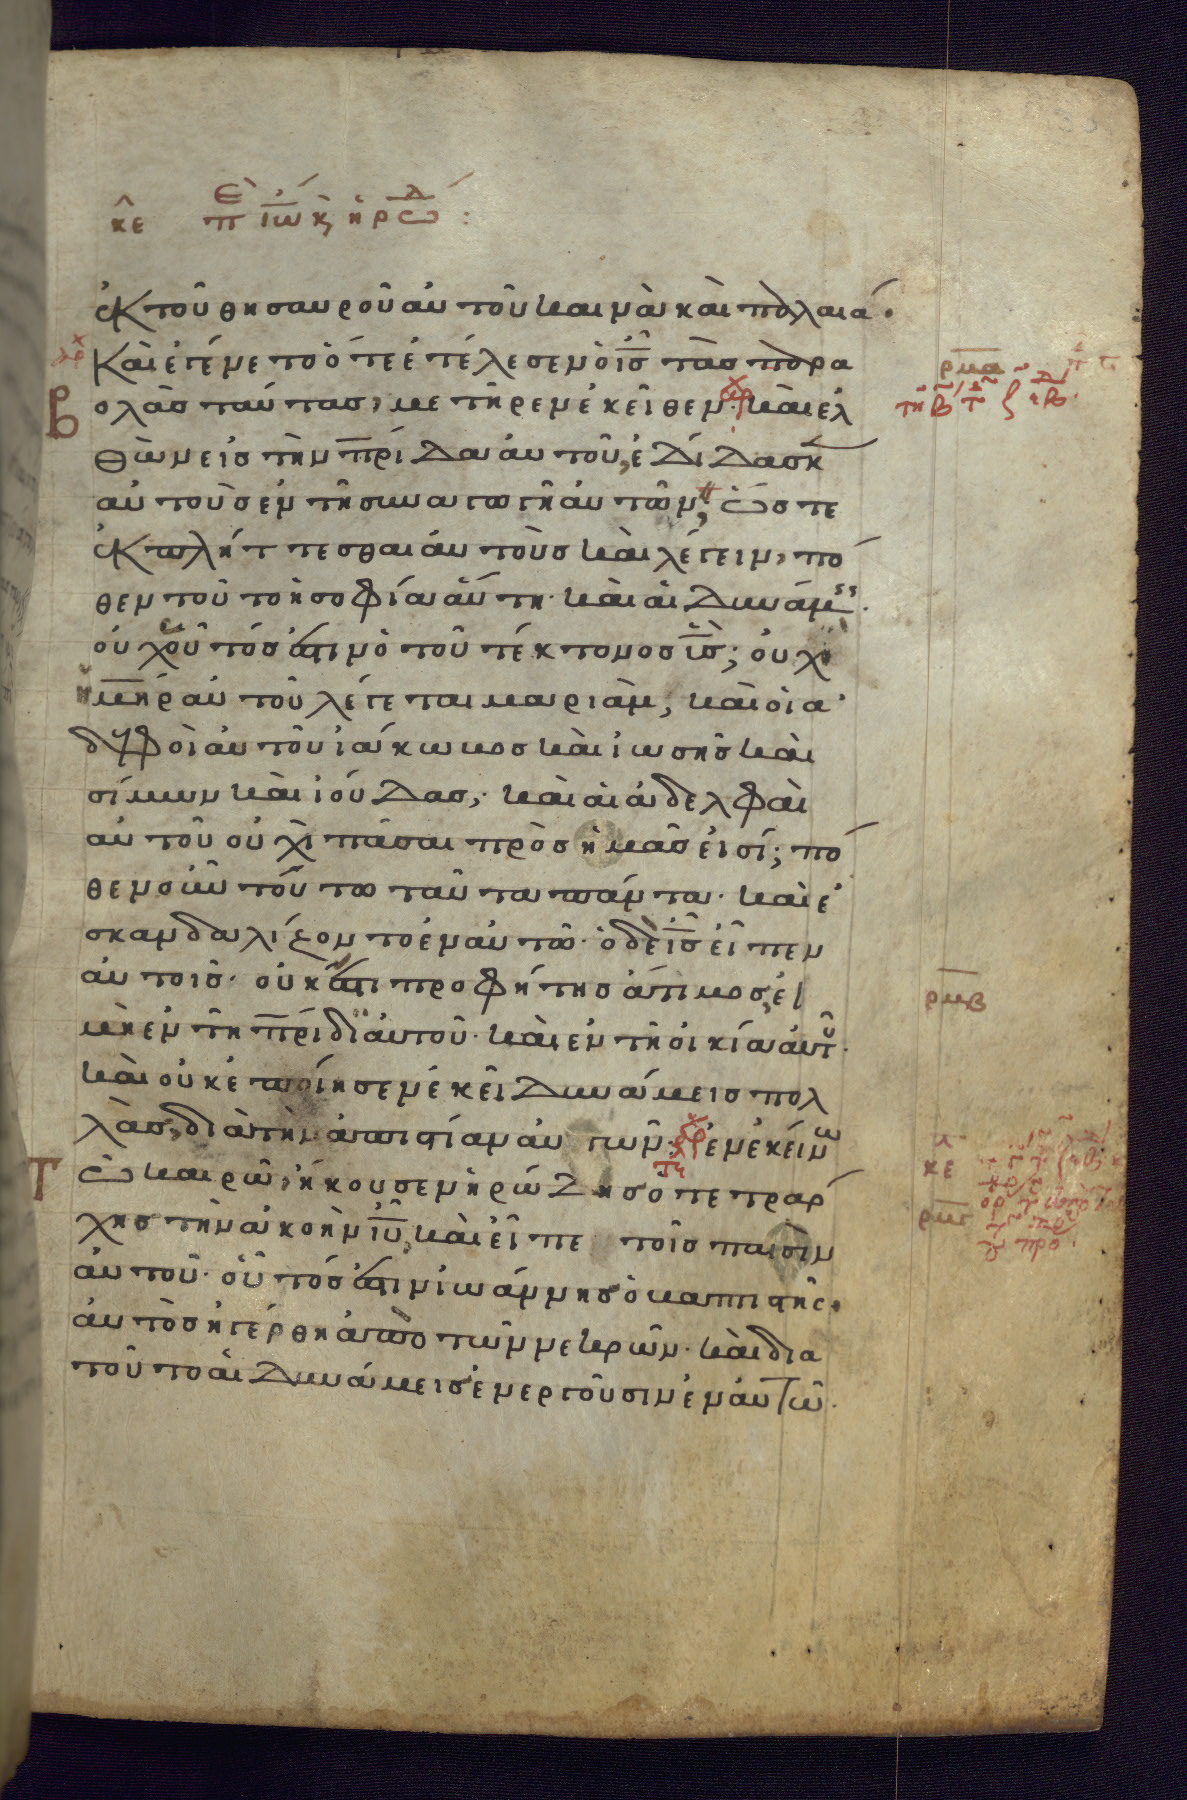 κε πε ιω κ ηρωδ :
ἐκ τοῦ θησαυροῦ αὐτοῦ καινὰ καὶ παλαιά.
Καὶ ἐγένετο ὅτε ἐτέλεσεν ὁ ις τὰς παρα
βολὰς ταύτας, μετῆρεν ἐκεῖθεν· καὶ ἐλ
θὼν εἰς τὴν πρίδα αὐτοῦ, ἐδίδασκ
αὐτοὺς ἐν τῇ συναγωγῇ αὐτῶν, ὥστε
ἐκπλήττεσθαι αὐτοὺς καὶ λέγειν, πό
θεν τούτο ἡ σοφία αὕτη· καὶ αἱ δυνάμεις·
οὐχ οὗτός ἐστιν ὁ τοῦ τέκτονος ις; οὐχὶ
ἡ μηρ αὐτοῦ λέγεται μαριὰμ, καὶ οἱ ἀ
δελφοὶ αὐτοῦ ἰάκωβος καὶ ἰωσῆς καὶ
σίμων καὶ ἰούδας; καὶ αἱ ἀδελφαὶ
αὐτοῦ οὐχὶ πᾶσαι πρὸς ἡμᾶς εἰσί; πό
θεν οὖν τούτω ταῦτα πάντα· καὶ ἐ
σκανδαλίζοντο ἐν αὐτῶ· ὁ δὲ ις εἶπεν
αὐτοῖς· οὐκ ἔστι προφήτης ἄτιμος, εἰ
μὴ ἐν τῇ πρίδι αὐτοῦ· καὶ ἐν τῇ οἰκία αὐτοῦ·
καὶ οὐκ ἐποίησεν ἐκεῖ δυνάμεις πολ
λὰς, διὰ τὴν ἀπιστίαν αὐτῶν· ἐν ἐκείνω
Τῶ καιρῶ, ἤκουσεν ἡρώδης ὁ τετράρ
χης τὴν ἀκοὴν ιυ, καὶ εἶπε τοῖς παισὶν
αὐτοῦ· οὗτός ἐστιν ἰωάννης ὁ βαπτιστής·
αὐτὸς ἠγέρθη ἀπὸ τῶν νεκρῶν· καὶ δια
τοῦτο αἱ δυνάμεις ἐνεργοῦσιν ἐν αὐτῶ·
ρμα
ρμβ
κε
ρμγ